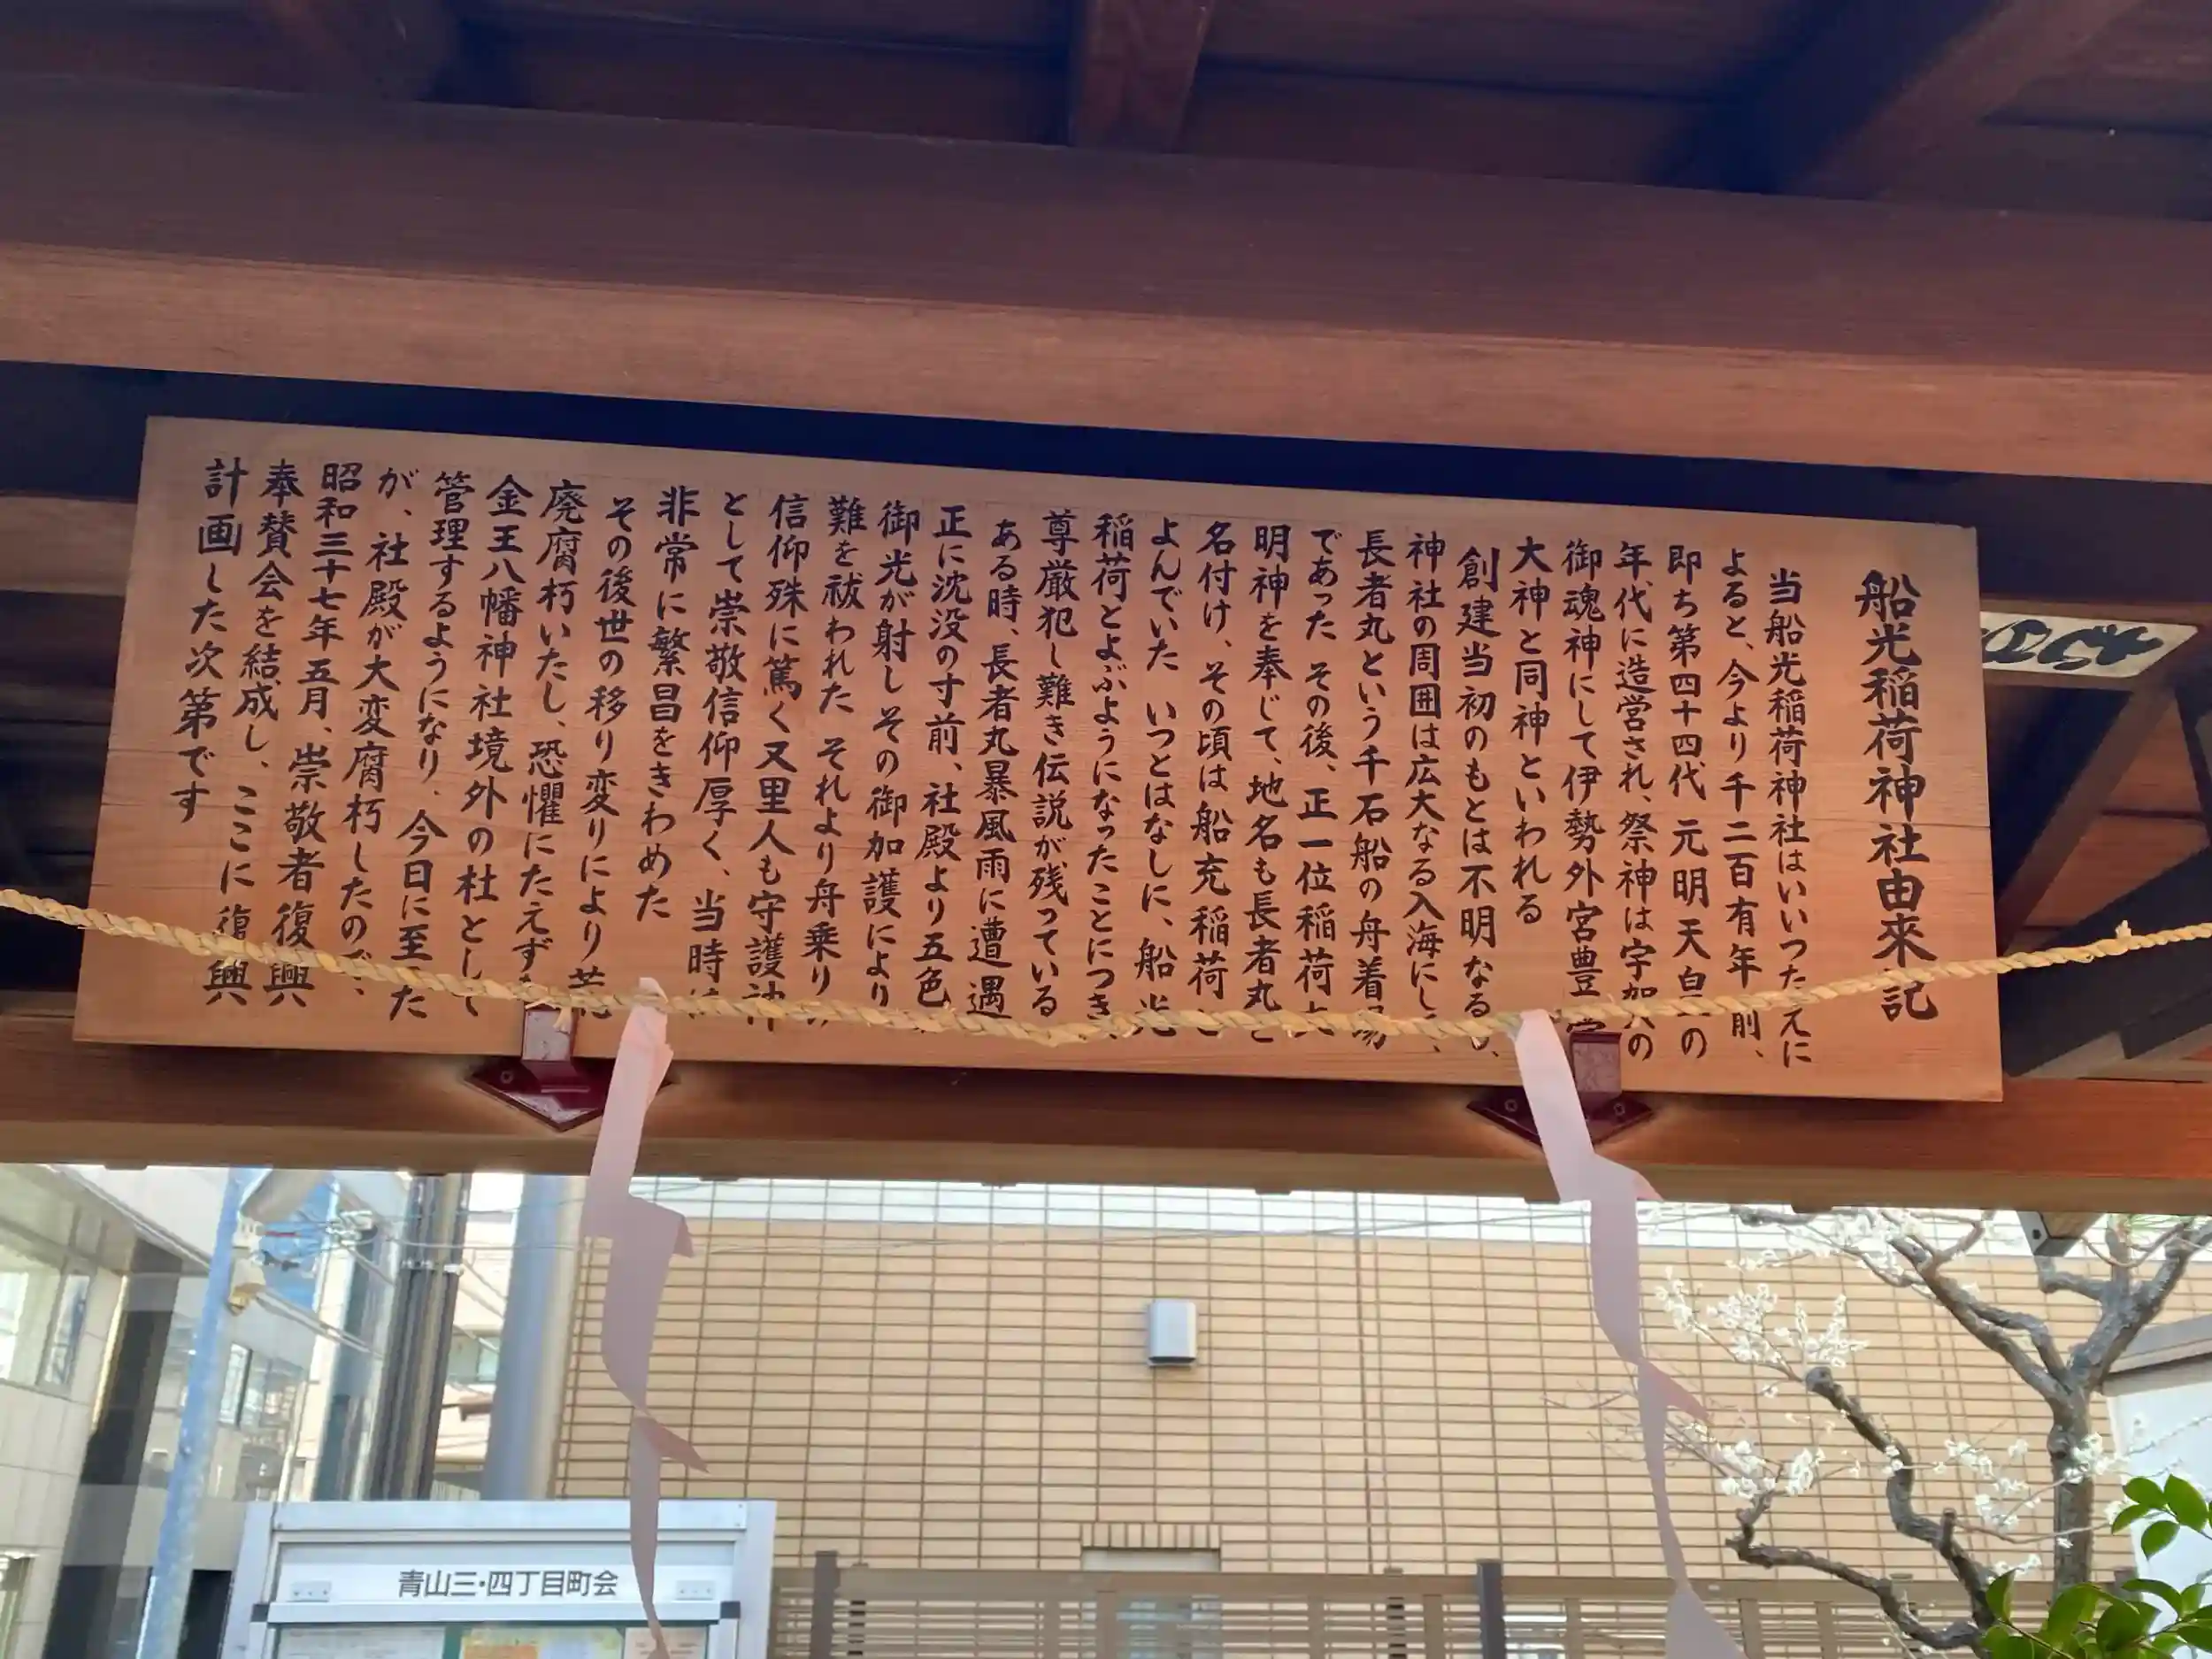 船光稲荷神社由来記
当船光稲荷神社はいいつたえに
よると、今より千二百有年前、
即ち第四十四代 元明天皇の
年代に造営され、祭神は宇加之の
御魂神にして伊勢外宮豊受
大神と同神といわれる
創建当初のもとは不明なるも、
神社の周囲は広大なる入海にして、
長者丸という千石船の舟着場
であった その後、正一位稲荷大
明神を奉じて、地名も長者丸と
名付け、その頃は船充稲荷と
よんでいた いつとはなしに、船光
稲荷とよぶようになったことにつき、
尊厳犯し難き伝説が残っている
ある時、長者丸暴風雨に遭遇
正に沈没の寸前、社殿より五色
御光が射しその御加護により
難を祓われた それより舟乗り
信仰殊に篤く又里人も守護神
として崇敬信仰厚く、当時は
非常に繁昌をきわめた
その後世の移り変りにより荒
廃腐朽いたし、恐懼にたえず
金王八幡神社境外の社として
管理するようになり、今日に至った
が、社殿が大変腐朽したので、
昭和三十七年五月、崇敬者復興
奉賛会を結成し、ここに復興
計画した次第です
青山三・四丁目町会